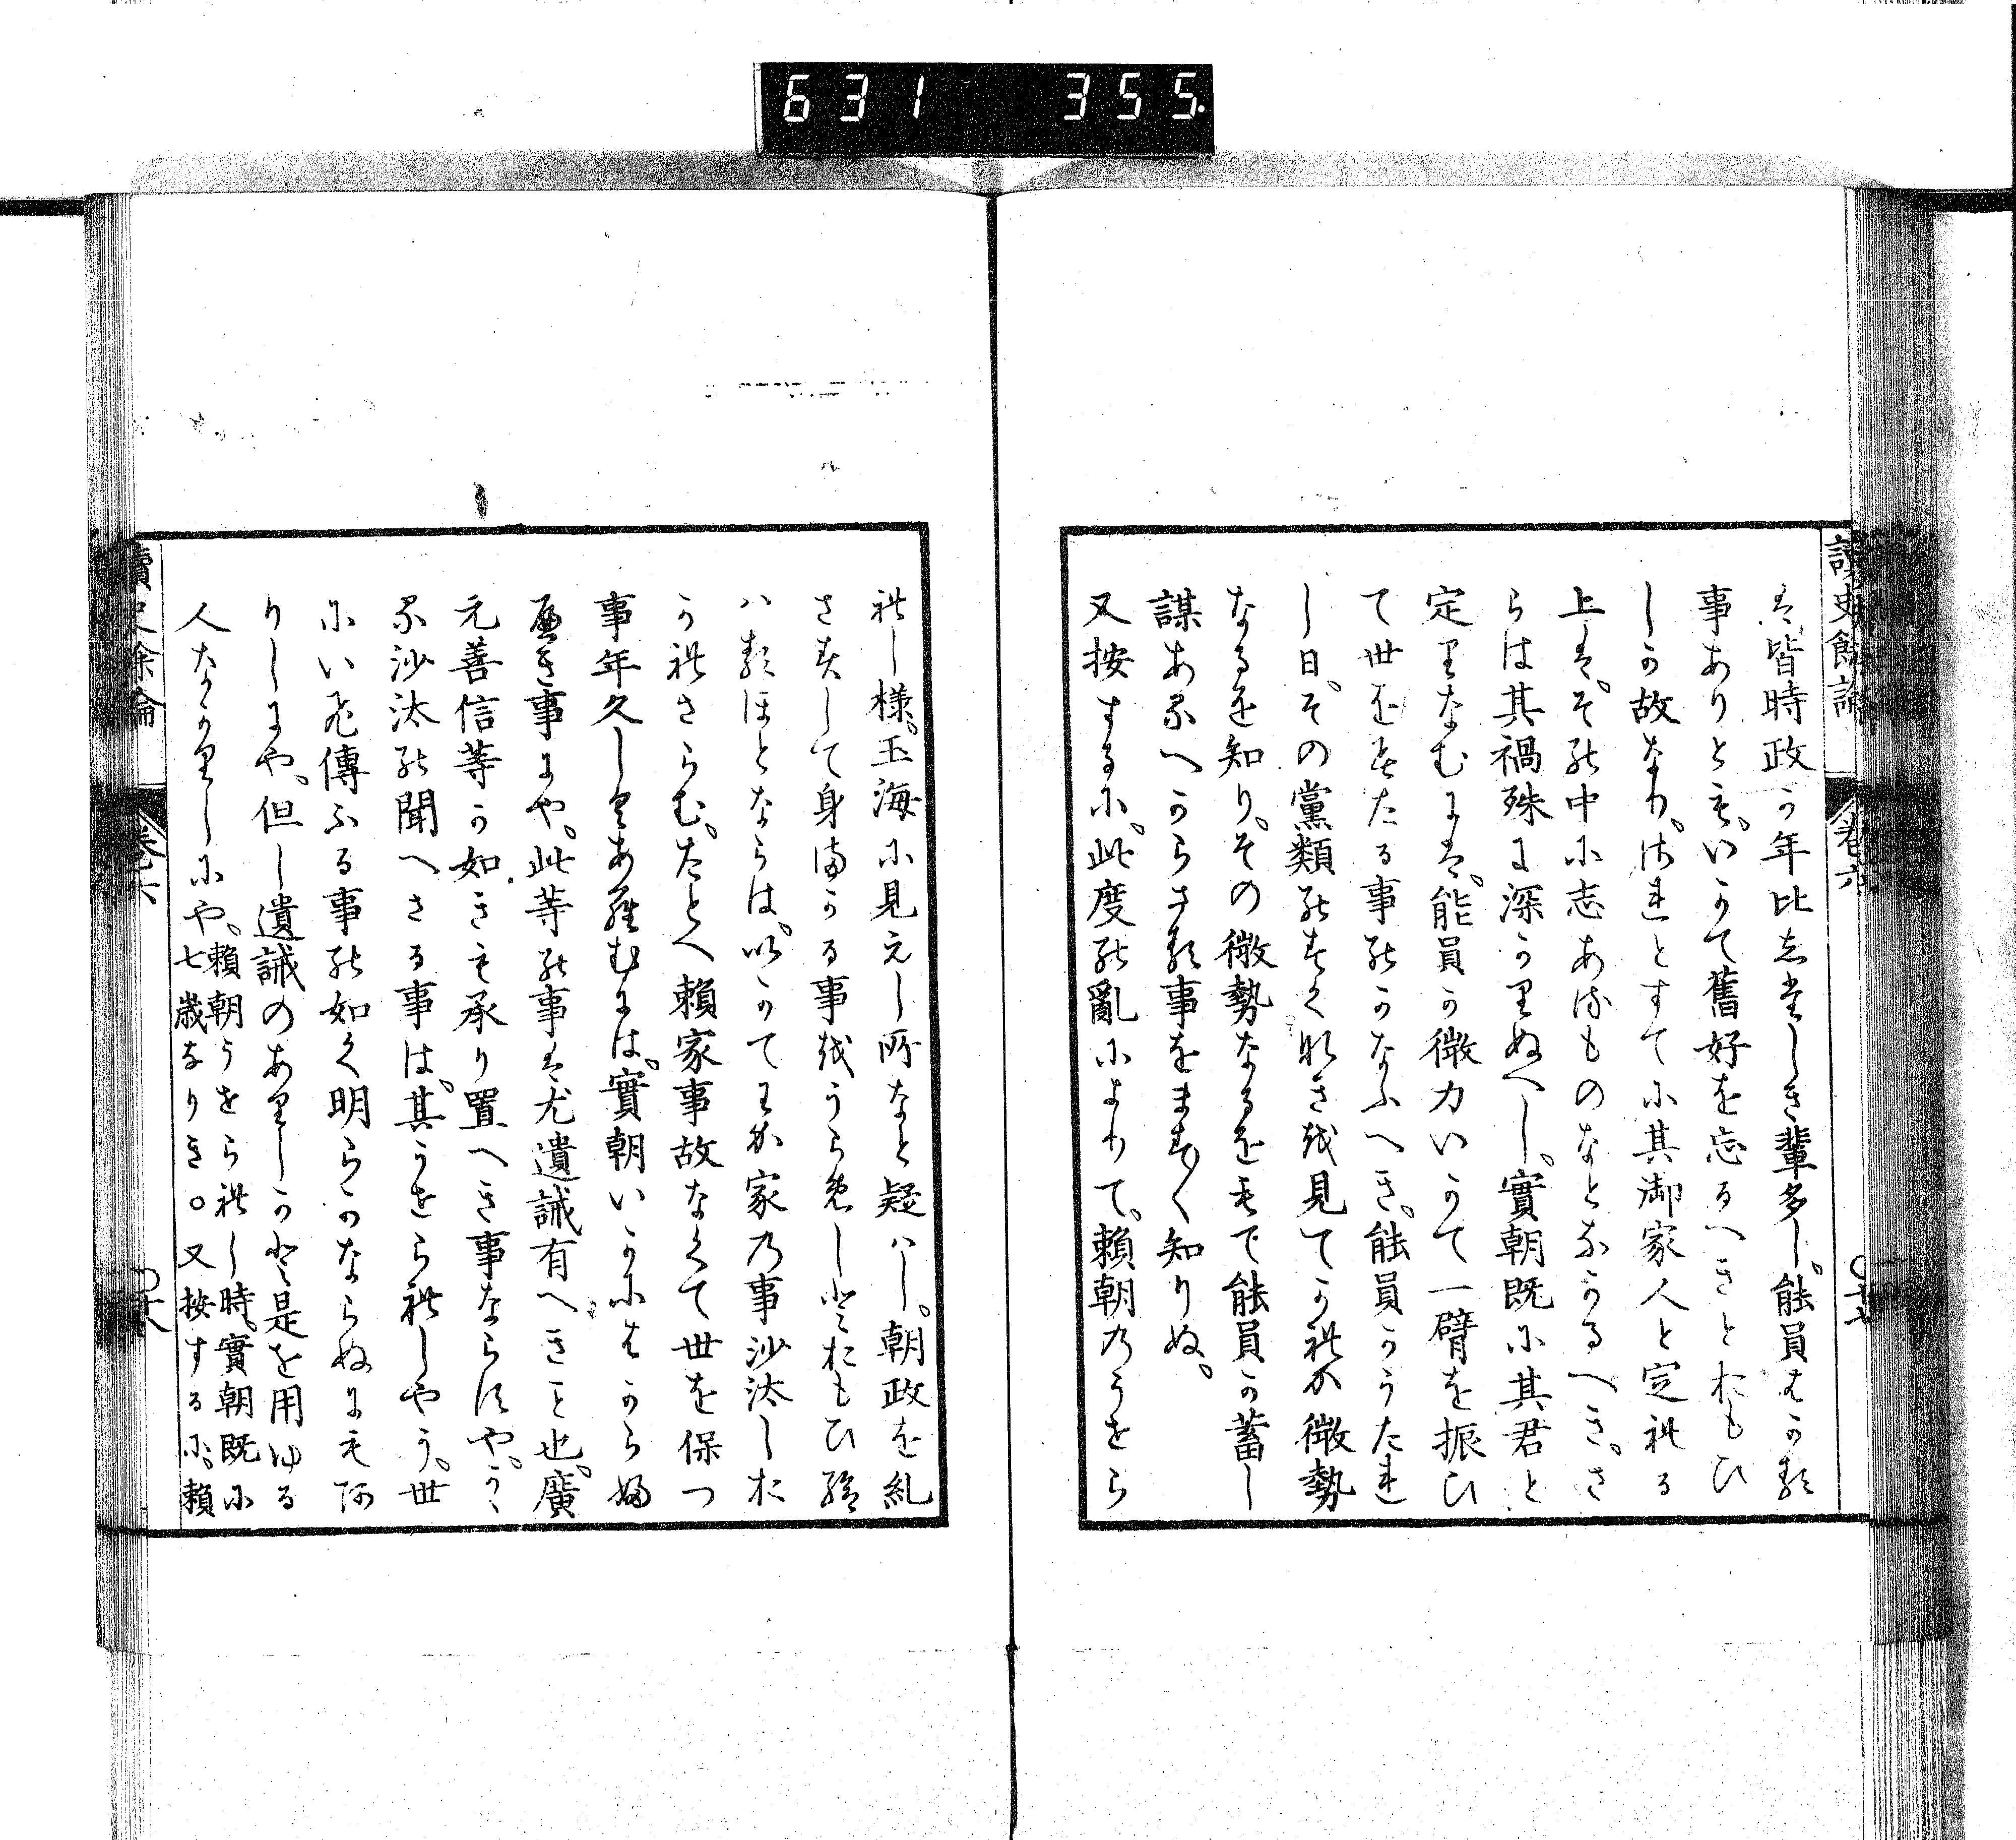 631 355
讀史餘論
卷六
〇十七
は皆時政か年比したしき輩多し。能員はかる
事ありとも。いかて舊好を忘るへきとおもひ
しか故なり。されとすてに其御家人と定れる
上は。その中に志あるものなとなかるへき。さ
らは其禍殊に深かりぬへし。實朝既に其君と
定りなむには。能員か微力いかて一臂を振ひ
て世をみたる事のかなふへき。能員かうたれ
し日。その黨類のすくなきを見てかれか微勢
なるを知り。その微勢なるをもて能員か蓄し
謀あるへからさる事をますます知りぬ。
又按するに。此度の亂によりて。賴朝のうせら
れし様。玉海に見えし所なと疑ハし。朝政を糺
さすして身まかる事をうらめしとおもひ給
ハるほとならは。いかてわか家の事沙汰しお
かれさらむ。たとへ賴家事故なくて世を保つ
事年久しくあらむには。實朝いかにはからふ
へき事にや。此等の事は尤遺誡有へきこと也。廣
元善信等か如きも承り置へき事ならすや。かゝ
る沙汰の聞へさる事は。其うせられしやう。世
にいひ傳ふる事の如く明らかならぬにもあ
りしにや。但し遺誡のありしかと是を用ゆる
人なかりしにや。賴朝うせられし時。實朝既に
七歲なりき。〇又按するに。賴
讀史餘論
卷六
〇十八